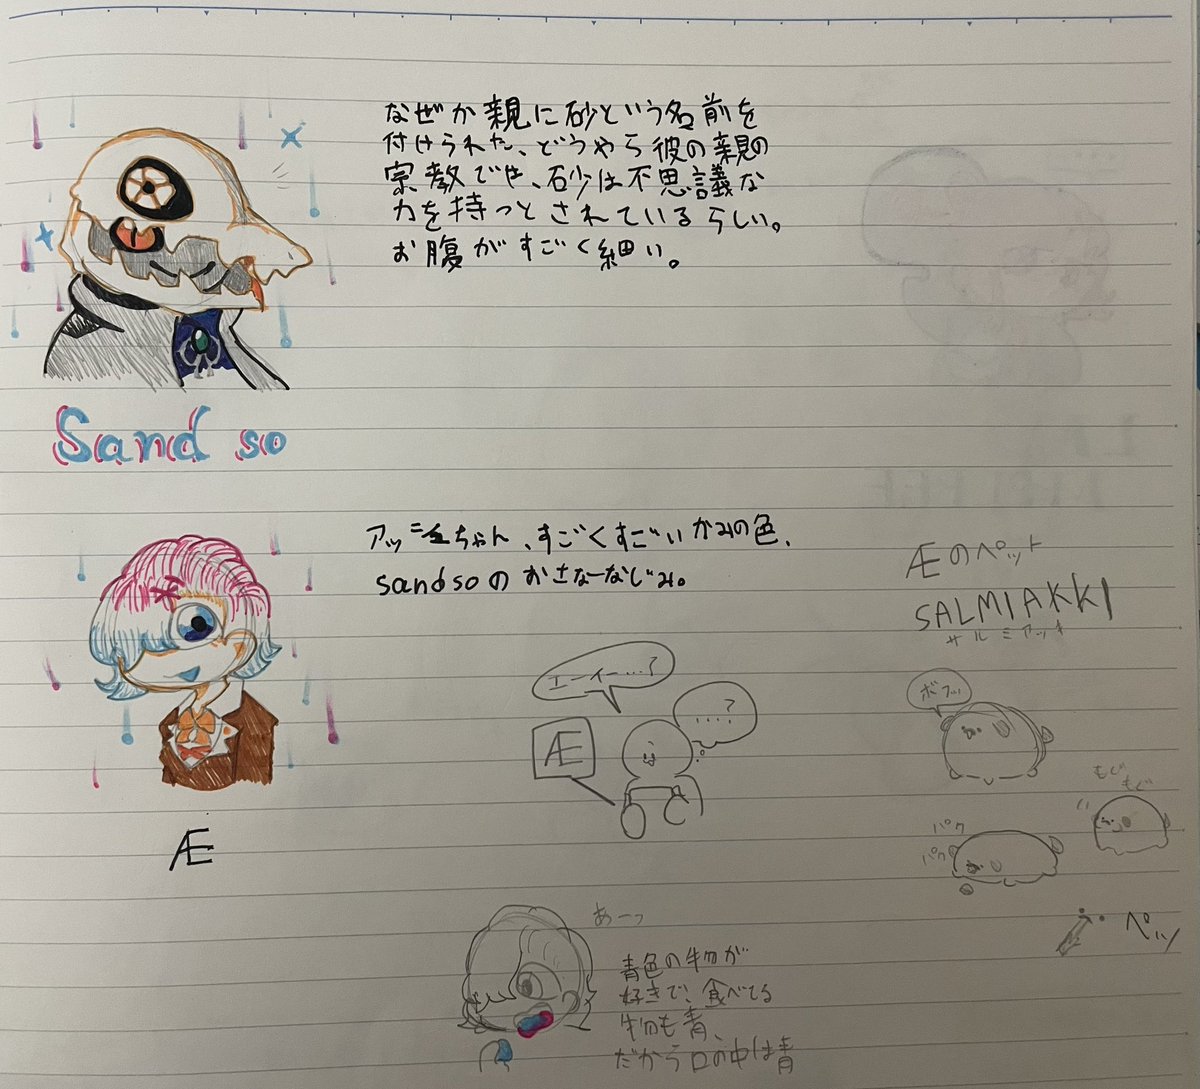 なぜか親に砂という名前を
付けられた、どうやら彼の親の
宗教でき、砂は不思議な
力を持つとされているらしい。
お腹がすごく細い。
Sand so
ちゃん、すごくすごいかみの色、
sandsoのおさなーなじみ。
Æ
エーイー…?
....?
Æ
Æのペット
SALMIAKKI
サルミアッキ
ボフッ
もぐ
もぐ
パク
パク
ペッ
あーっ
青色の物が
好きで、食べてる
物も青、
だから口の中は青